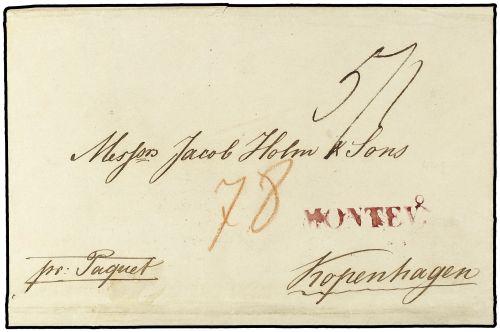 5/1
Messrs Jacob Holm & Sons
78
MONTEVo
pr: Paquet
Kopenhagen